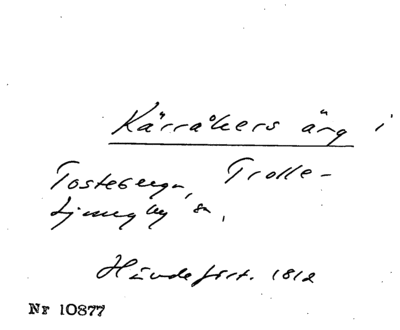 Kärråkers äng i
Tosteberga, Trolle-
Ljungby sn,
Hävdeført. 1812
Nr 10877